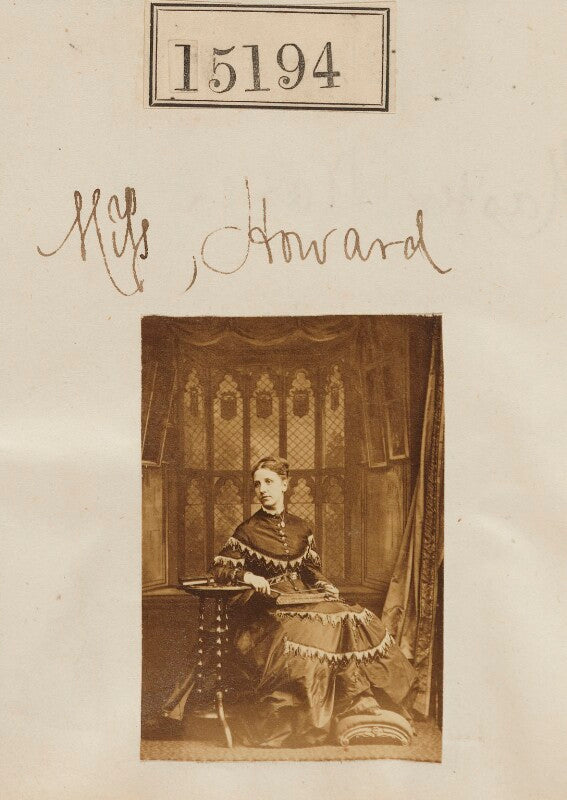 15194
Miss Howard